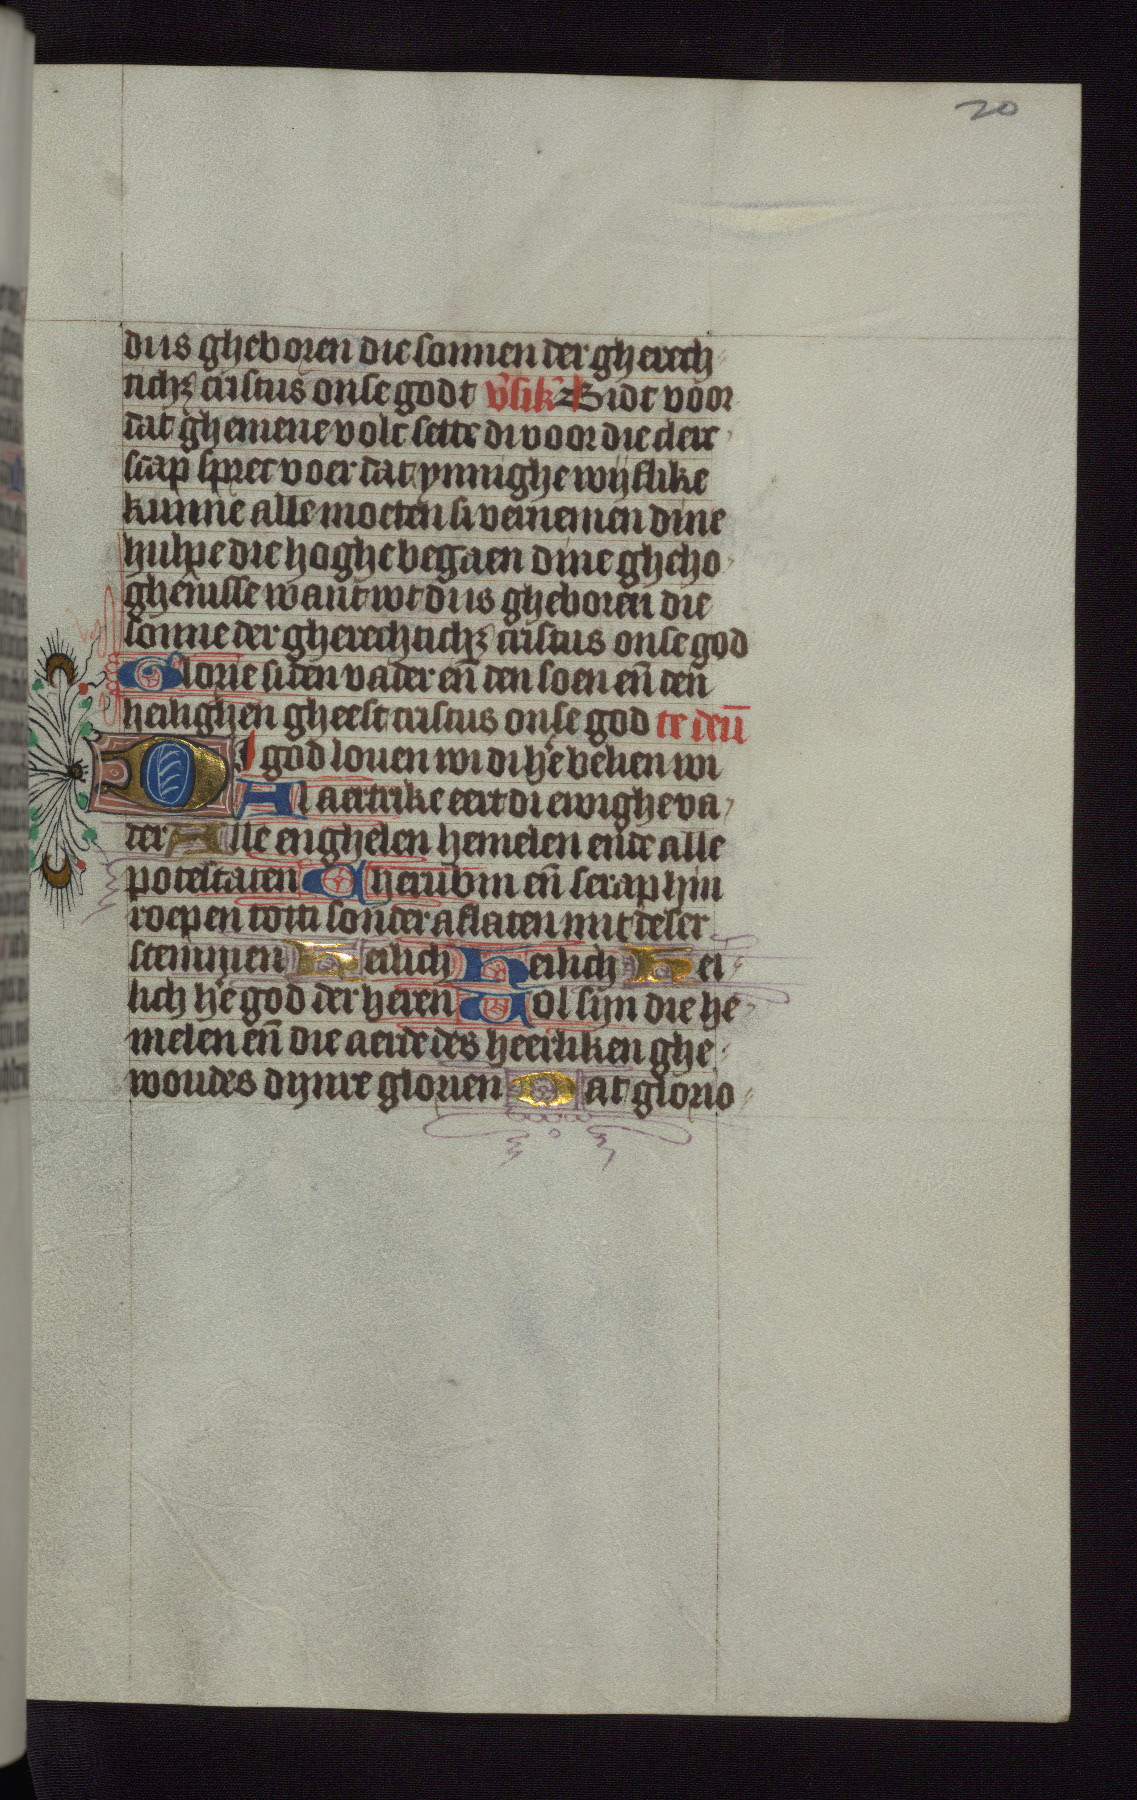 20
di is gheboren die sonnen der gherech
tich&#42863; cristus onse godt v̓sik̓ Bidt voor
dat ghemene volc sette di voor die cleer
scap spret voer dat ynnighe wijflike
kunne alle moeten si vernemen dine
hulpe die hoghe begaen dine gheho
ghenisse want wt di is gheboren die
sonne der gherechtich&#42863; cristus onse god
Glorie si den vader en̄ den soen en̄ den
heilighen gheest cristus onse god te deū
DI god louen wi di he̓ belien wi
Al aertrike eert di ewighe va
der Alle enghelen hemelen ende alle
potestaten Cherubin en̄ seraphin
roepen totti sonder aflaten mit deser
stemmen Heilich Heilich Hei
lich he̓ god der heren Uol sijn die he
melen en̄ die aerde des heerliken ghe
woudes dijnre glorien Dat glorio